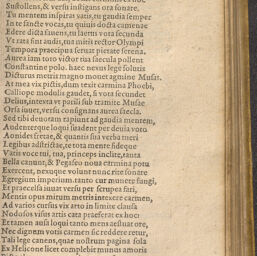 Sustollens, & versu instigans ora sonare.
Tu mentem inspiras vatis, tu gaudia semper
In te sancte vocas, tu quiuis docta camenae
Edere dicta fauens, tu laetus vota secunda
Vt rata sint audis, tua mitis rector Olympi
Tempora praecipua seruat pietate serena.
Aurea iam toto victor tua saecula pollent
Constantine polo. haec neuus lege solutis
Dicturus metris magno mouet agmine Musas.
At mea vix pictis, dum texit carmina Phoebi,
Calliope modulis gaudet, si vota secundet
Delius, intexta vt parili sub tramite Musae
Orsa iuuet, versu consignans aurea saecla.
Sed tibi deuotam rapiunt ad gaudia mentem,
Audenterque loqui suadent per deuia voto
Aonides fretae, & quantis sua verba metri
Legibus adstrictae, te tota mente fideque
Vatis voce tui, tua, princeps inclite, tanta
Bella canunt, & Pegaseo noua carmina potu
Exercent, nexuque volunt nunc rite sonare
Egregium imperium. tanto cur munere fangi,
Et praecelsa iuuat versu per scrupea fari,
Mentis opus mirum metris intexere carmen,
Ad varios cursus vix arto in limite clausa
Nodosos visus artis cata praeferat ex hoc:
Et tamen ausa loqui tanto mens aestuat ore,
Nec dignum votis carmen sic reddere retur,
Tali lege canens, quae nostrum pagina sola
Ex Helicone licet complebit munus amoris